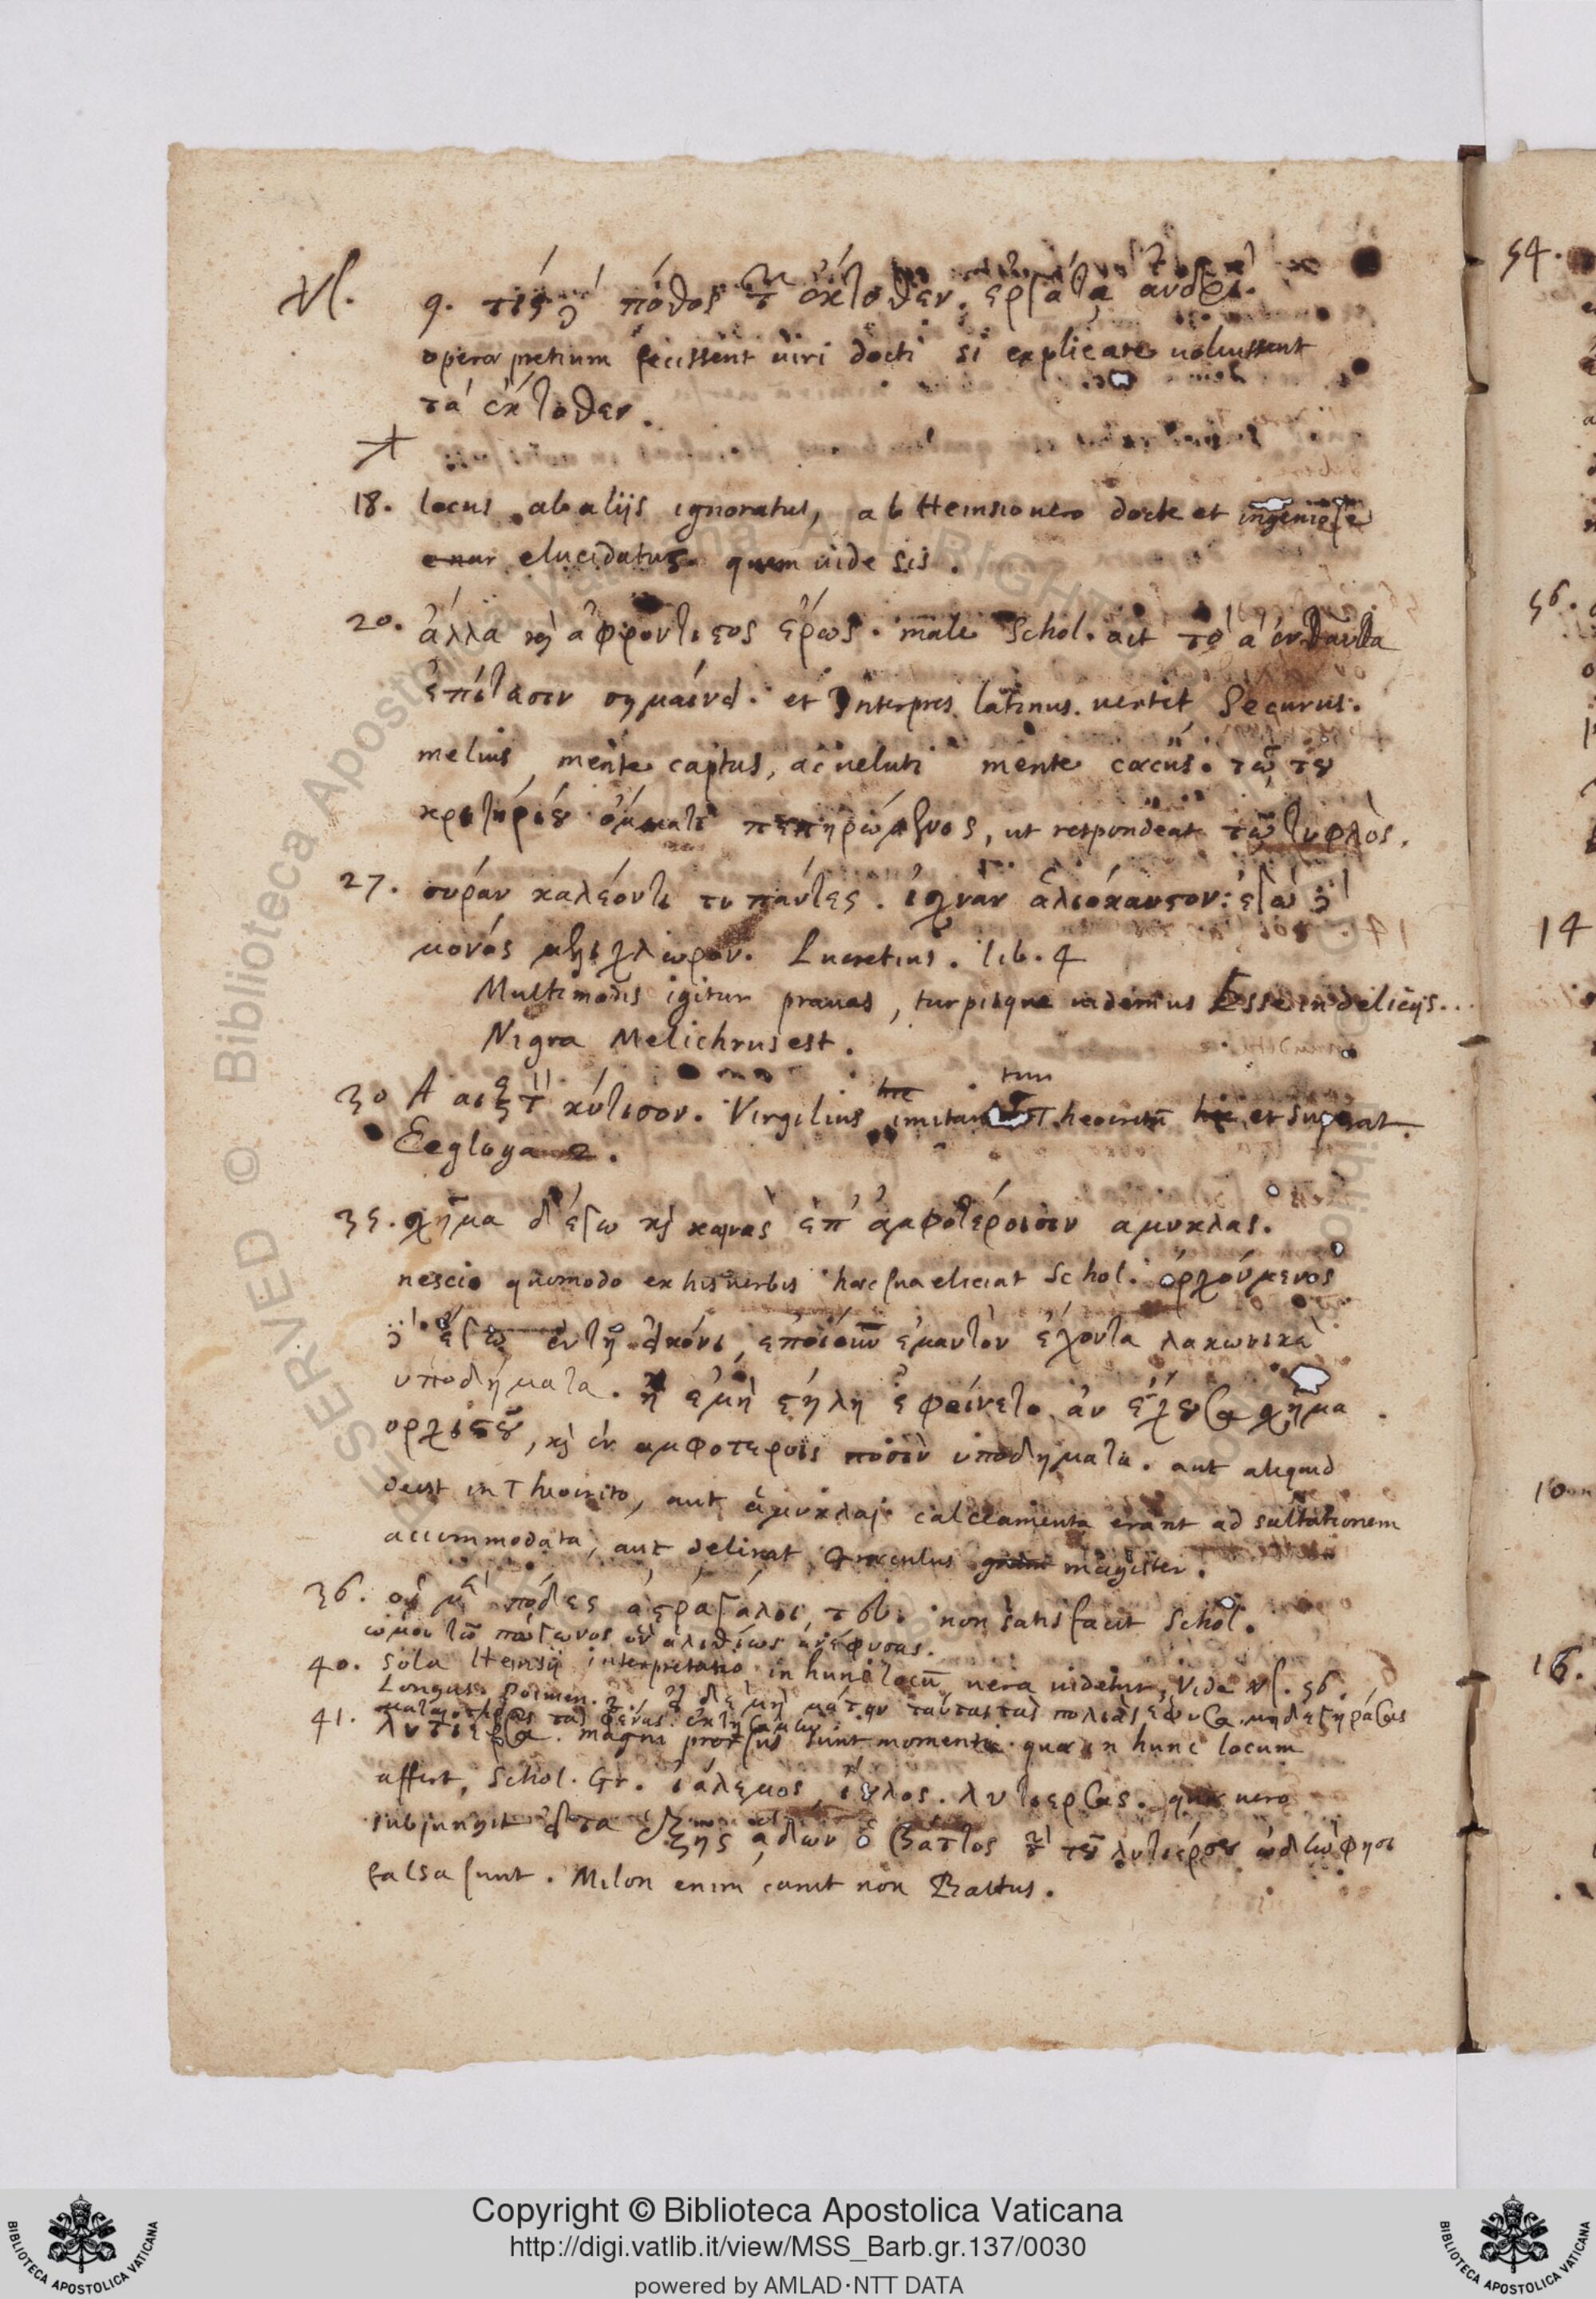 Vs. 9. τίς δὲ πόθος τῶν ἔκτοθεν ἐργάτᾳ ἀνδρί.
operæ pretium fecissent viri docti si explicare voluissent
τὰ ἔκτοθεν.
18. locus ab aliis ignoratus, ab Heinsio vero docte et ingeniose
enar elucidatus. quem vide sis.
20. ἀλλὰ καὶ ἀφρόντιστος ἔρως. male Schol. ait τὸ α ἐνταῦθα
ἐπίτασιν σημαίνει. et Interpres latinus vertit Securus.
melius, mente captus, ac veluti mente cæcus. τῷ τοῦ
κριτηρίου ὄμματι πεπηρώμενος, ut respondeat τῷ τυφλὸς.
27. συράν καλέοντι τυ πάντες. ἰσχνὰν ἁλιόκαυστον: ἐγὼ δὲ
μόνος μελίχλωρον. Lucretius. lib. 4
Multimodis igitur pravas, turpisque videmus Esse in delicijs...
Nigra Melichrus est.
30 Α αἲξ τὸν κύτισον. Virgilius hic imitatur Theocritū hic et superat.
Eegloga 2.
35. σχῆμα δ' ἐγὼ καὶ καινὰς ἐπ' ἀμφοτέροισιν αμυκλας.
nescio quomodo ex his verbis hæc sua eliciat Schol. ὀρχούμενος
δὲ ἐγὼ ἐν τῇ εἰκόνι, ἐποίουν ἐμαυτὸν ἔχοντα λακωνικὰ
ὑποδήματα. ἢ ἐμὴ στήλη ἐφαίνετο ἂν ἔχουσα σχῆμα
ορχιστοῦ, καὶ ἐν αμφοτεροις ποσὶν ὑποδήματα. aut aliquid
deest in Theocrito, aut ἀμυκλαι calceamenta erant ad saltationem
accommodata, aut delirat Græculus magister.
36. οἱ μὲν πόδες ἀστράγαλοι τευ. non satisfacit Schol.
40. ὤμοι τῶ πώγωνος ὃν ἀλιθίως ἀνέφυσας.
Sola Heinsij interpretatio in hunc locū vera videtur, Vide Vs. 56.
Longus. Poimen. 2.
41. λυτιέρσα. magni prorsus sunt momenti quæ in hunc locum
affert, Schol. Gr. ἰάλεμος, ἴουλος. λυτιέρσας. quæ vero
subjungit εἶτα ἑξῆς ᾄδων ὁ Βάττος τὴν τοῦ λυτιέρσου ᾠδὴν φησι
falsa sunt. Milon enim canit non Battus.
54.
56.
14
10
16.
Copyright © Biblioteca Apostolica Vaticana
http://digi.vatlib.it/view/MSS_Barb.gr.137/0030
powered by AMLAD·NTT DATA
BIBLIOTECA APOSTOLICA VATICANA
BIBLIOTECA APOSTOLICA VATICANA